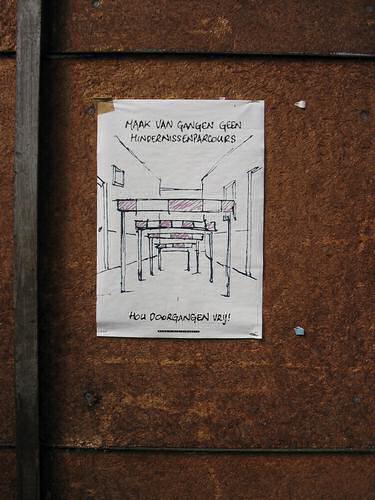 MAAK VAN GANGEN GEEN
HINDERNISSENPARCOURS
HOU DOORGANGEN VRIJ!